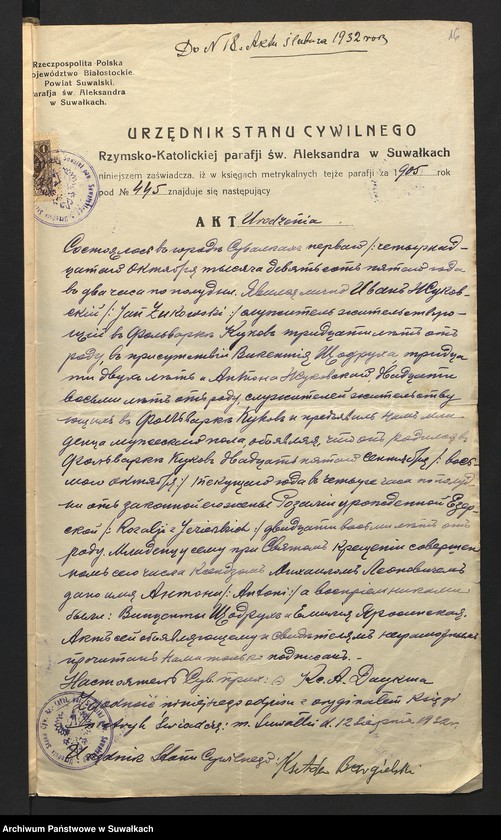 Do N 18. Aktu ślubu z 1932 roku
16
Rzeczpospolita Polska
Województwo Białostockie.
Powiat Suwalski.
Parafja św. Aleksandra
w Suwałkach.
URZĘDNIK STANU CYWILNEGO
Rzymsko-Katolickiej parafji św. Aleksandra w Suwałkach
niniejszem zaświadcza, iż w księgach metrykalnych tejże parafji za 1905 rok
pod № 445 znajduje się następujący
AKT Urodzenia.
Состоялось въ городѣ Сувалкахъ перваго /: четырнад-
цатаго Октября тысяча девятьсотъ пятаго года
въ два часа по полудни. Явился лично Иванъ Жуков-
скій /: Jan Żukowski :/ служитель жительствую-
щій въ Фольваркѣ Куковъ тридцати лѣтъ отъ
роду въ присутствіи Викентія Щодруха тридца
ти двухъ лѣтъ и Антона Жуковскаго двадцати
восьми лѣтъ отъ роду, служителей жительству
ющихъ въ Фольваркѣ Куковъ и предъявилъ намъ мла-
денца мужескаго пола, объявляя, что онъ родился въ
Фольваркѣ Куковъ двадцать пятаго Сентября /: вось-
маго Октября :/ текущаго года въ четыре часа по полуд
ни отъ законной его жены Розаліи урожденной Езер-
ской /: Rozalji z Jezierskich :/ двадцати восьми лѣтъ отъ
роду. Младенцу сему при Святомъ Крещеніи совершен
номъ сего числа Ксендзомъ Михаиломъ Леоновичемъ
дано имя Антоны /: Antoni :/ а воспріемниками
были: Викенты Щодрухъ и Емилія Яросинская.
Актъ сей объявляющему и свидѣтелямъ неграмотнымъ
прочитанъ нами только подписанъ.
Настоятель Сув. прих: Кс. А. Даукша
Zgodność niniejszego odpisu z oryginałem księgi
metryk świadczę. m. Suwałki d. 12 sierpnia 1932 r.
Urzędnik Stanu Cywilnego:
Archiwum Państwowe w Suwałkach